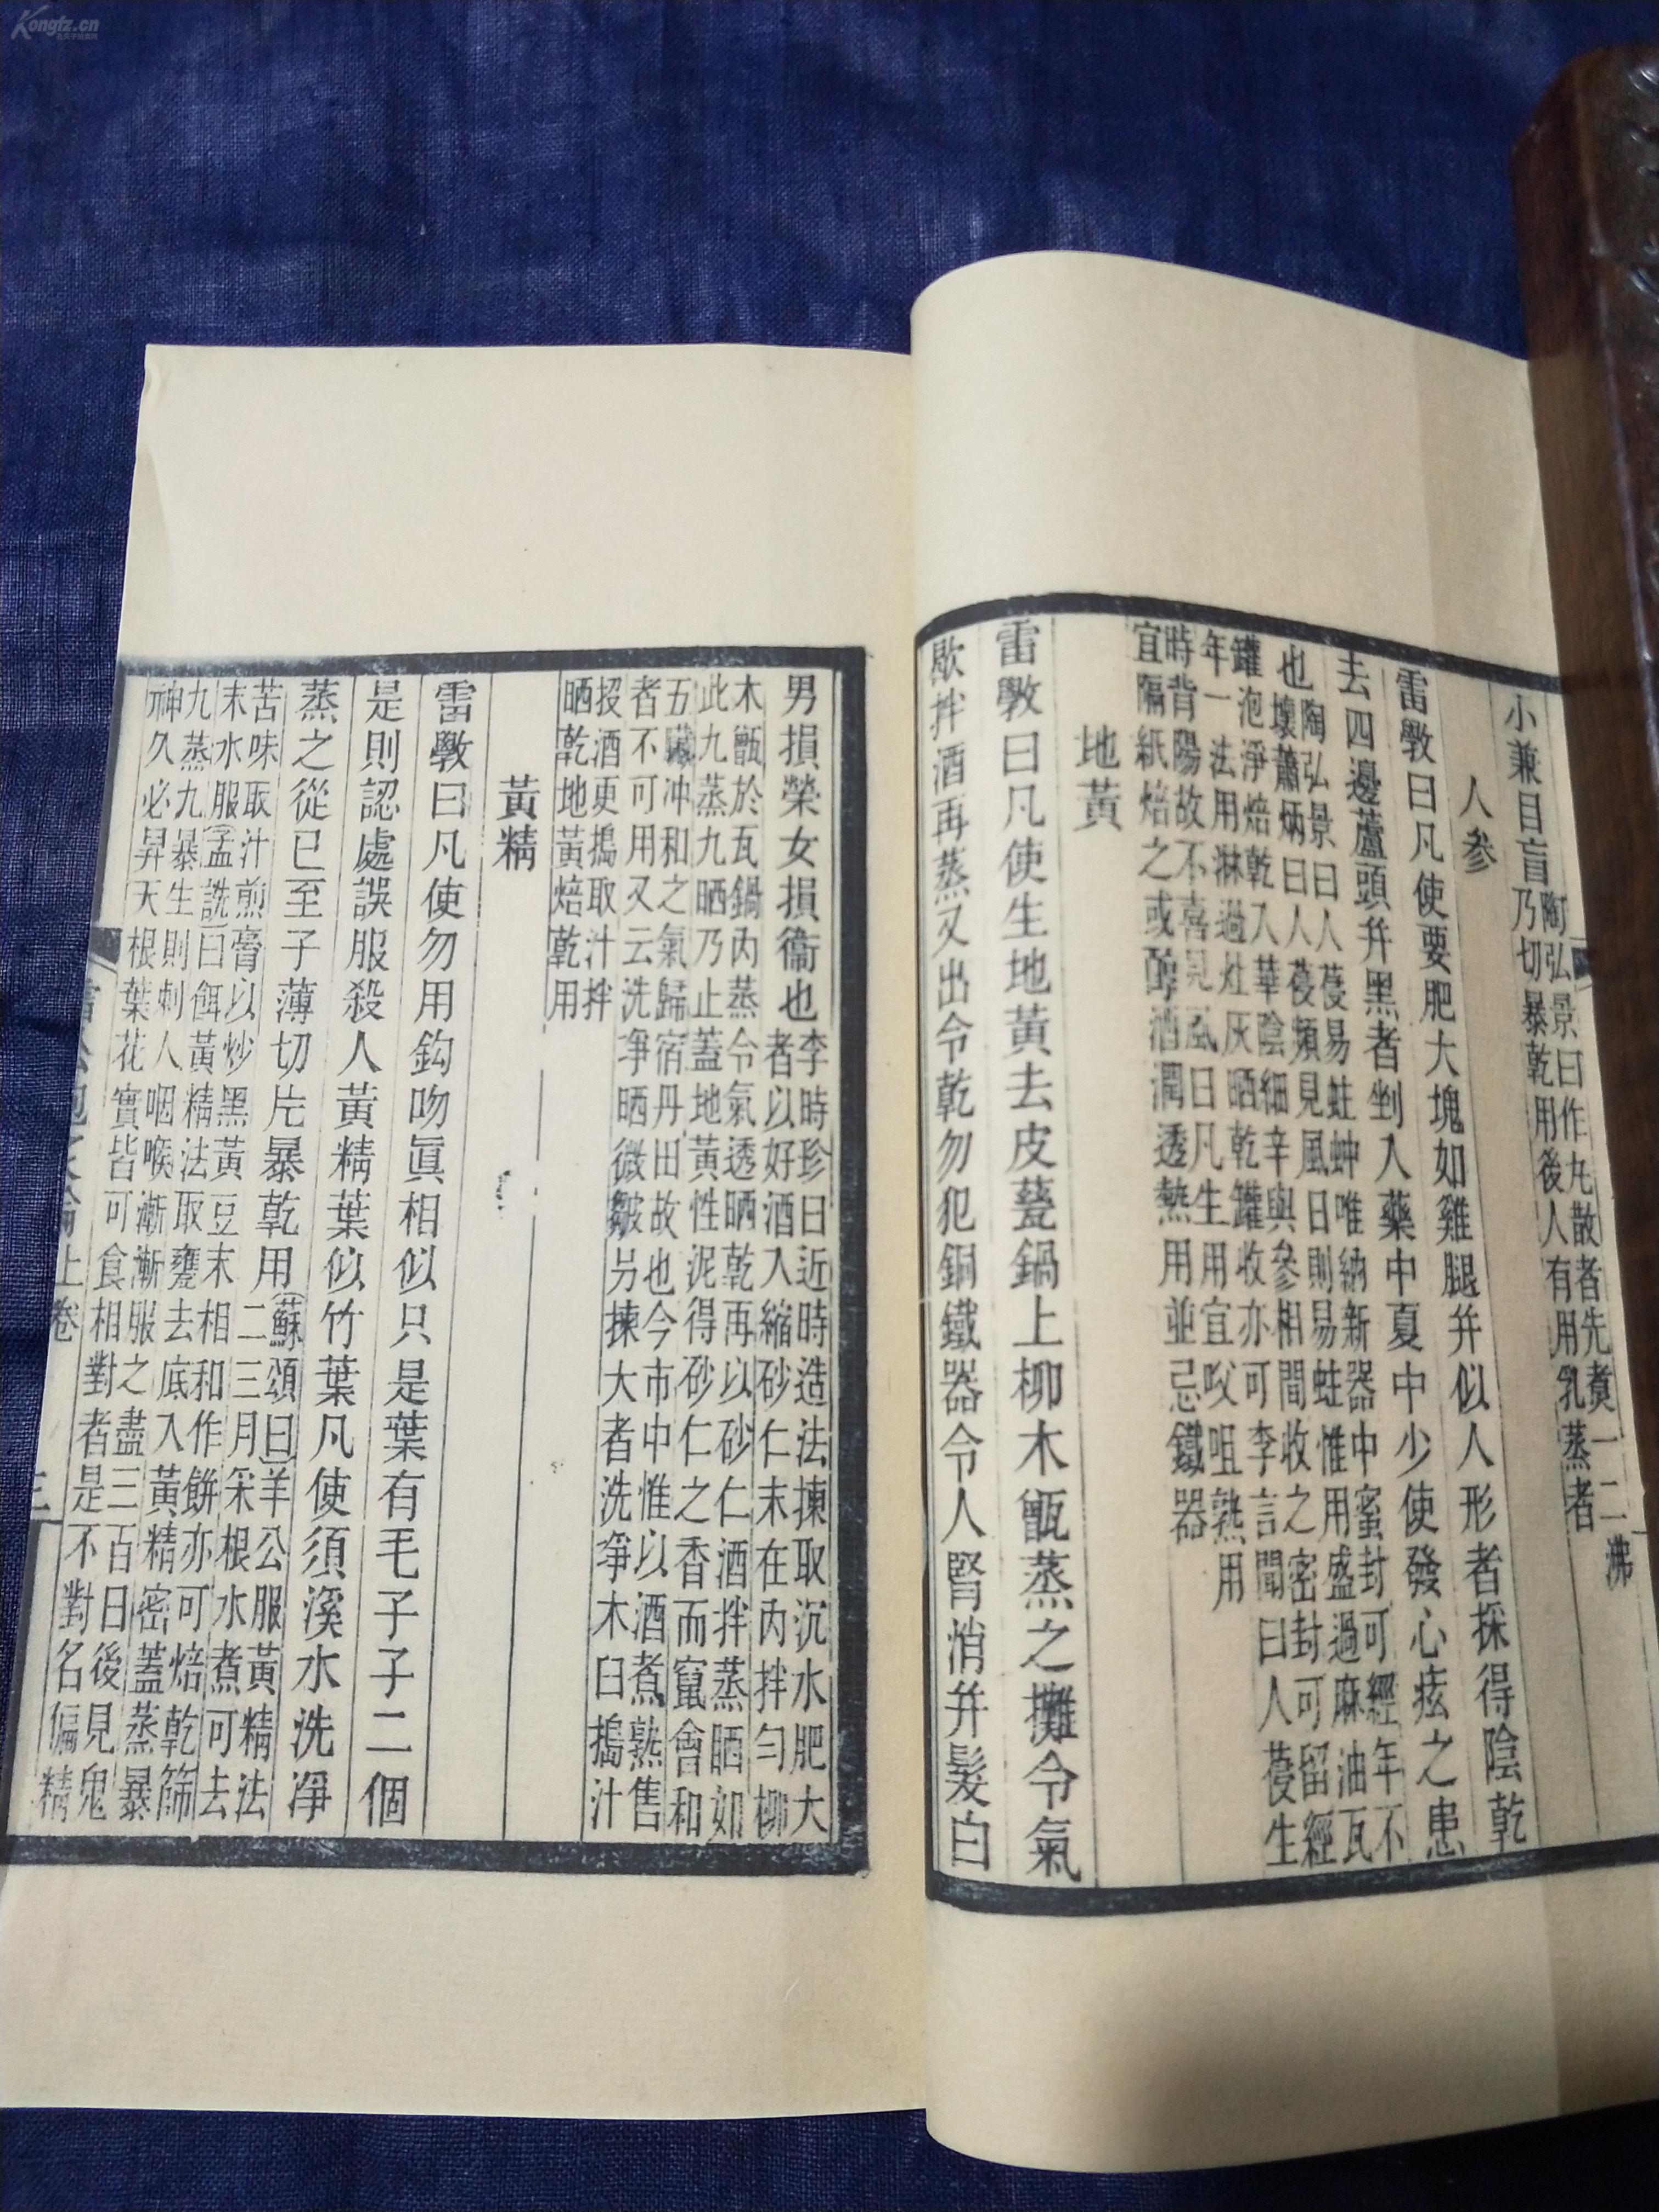 Kongfz.cn
小兼目盲陶弘景曰作丸散者先煮一二沸
乃切暴乾用後人有用乳蒸者
人參
雷斆曰凡使要肥大塊如雞腿幷似人形者採得陰乾
去四邊蘆頭幷黑者剉入藥中夏中少使發心痃之患
也陶弘景曰人葠易蛀蚛唯納新器中蜜封可經年不
壞蕭炳曰人葠頻見風日則易蛀惟用盛過麻油瓦
罐泡淨焙乾入華陰細辛與參相間收之密封可留經
年一法用淋過灶灰晒乾罐收亦可李言聞曰人葠生
時背陽故不喜見風日凡生用宜㕮咀熟用
宜隔紙焙之或醇酒潤透熱用並忌鐵器
地黃
雷斆曰凡使生地黃去皮甆鍋上柳木甑蒸之攤令氣
歇拌酒再蒸又出令乾勿犯銅鐵器令人腎消幷髮白
男損榮女損衞也李時珍曰近時造法揀取沉水肥大
者以好酒入縮砂仁末在內拌勻柳
木甑於瓦鍋內蒸令氣透晒乾再以砂仁酒拌蒸晒如
此九蒸九晒乃止蓋地黃性泥得砂仁之香而竄會和
五臟冲和之氣歸宿丹田故也今市中惟以酒煮熟售
者不可用又云洗爭晒微皺另揀大者洗爭木臼搗汁
投酒更搗取汁拌
晒乾地黃焙乾用
黃精
雷斆曰凡使勿用鈎吻眞相似只是葉有毛子子二個
是則認處誤服殺人黃精葉似竹葉凡使須溪水洗淨
蒸之從巳至子薄切片暴乾用(蘇頌曰)羊公服黃精法
二三月采根水煮可去
苦味取汁煎膏以炒黑黃豆末相和作餅亦可焙乾篩
末水服(孟詵)曰餌黃精法取甕去底入黃精密蓋蒸暴
九蒸九暴生則刺人咽喉漸漸服之盡三百日後見鬼
神久必昇天根葉花實皆可食相對者是不對名偏精
上卷